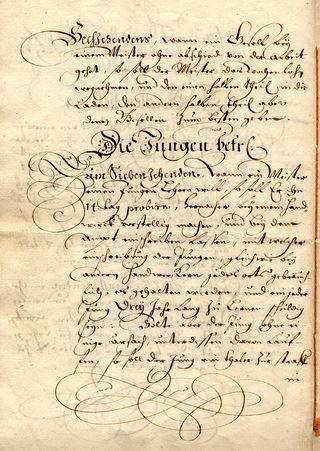 Sechszehendens, wann ein Gesell bey
einem Meister ohne abschied von der arbeit
gehet, so soll der Meister das Wochen Lohn
wegnehmen, und den einen halben theil in die
Laden, den andern halben theil aber
denen Gesellen zum besten geben.
Die Jungen betr:
Zum Siebenzehenden, Wann ein Meister
einen Jungen Lehren will, so soll Er ihn
14 tag probiren, hernacher
werck vorstellig machen, und bey dem
Ambt einschreiben lassen, mit welcher
einschreibung der Jungen, gleichwie bey
andern Handwerckern jedes orts gebräuch-
lich, es gehalten werden, und ein jeder
Jung Drey Jahr lang zu Lernen schuldig
seyn. Solte aber der Jung ohne ei-
nige Ursach, unterdessen davon lauf-
fen, so soll der Jung ein thaler zur straff
in